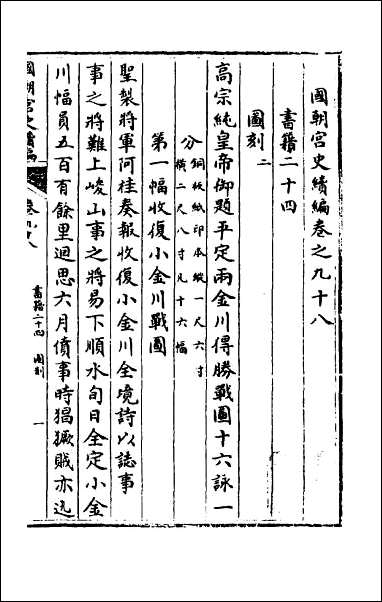 國朝宮史續編卷之九十八
書籍二十四
圖刻二
高宗純皇帝御題平定兩金川得勝戰圖十六詠一
分銅板紙印本縱一尺六寸
橫二尺八寸凡十六幅
第一幅收復小金川戰圖
聖製將軍阿桂奏報收復小金川全境詩以誌事
事之將難上峻山事之將易下順水旬日全定小金
川幅員五百有餘里迴思六月僨事時猖獗賊亦迅
國朝宮史續編
卷九十八
書籍二十四 圖刻
一